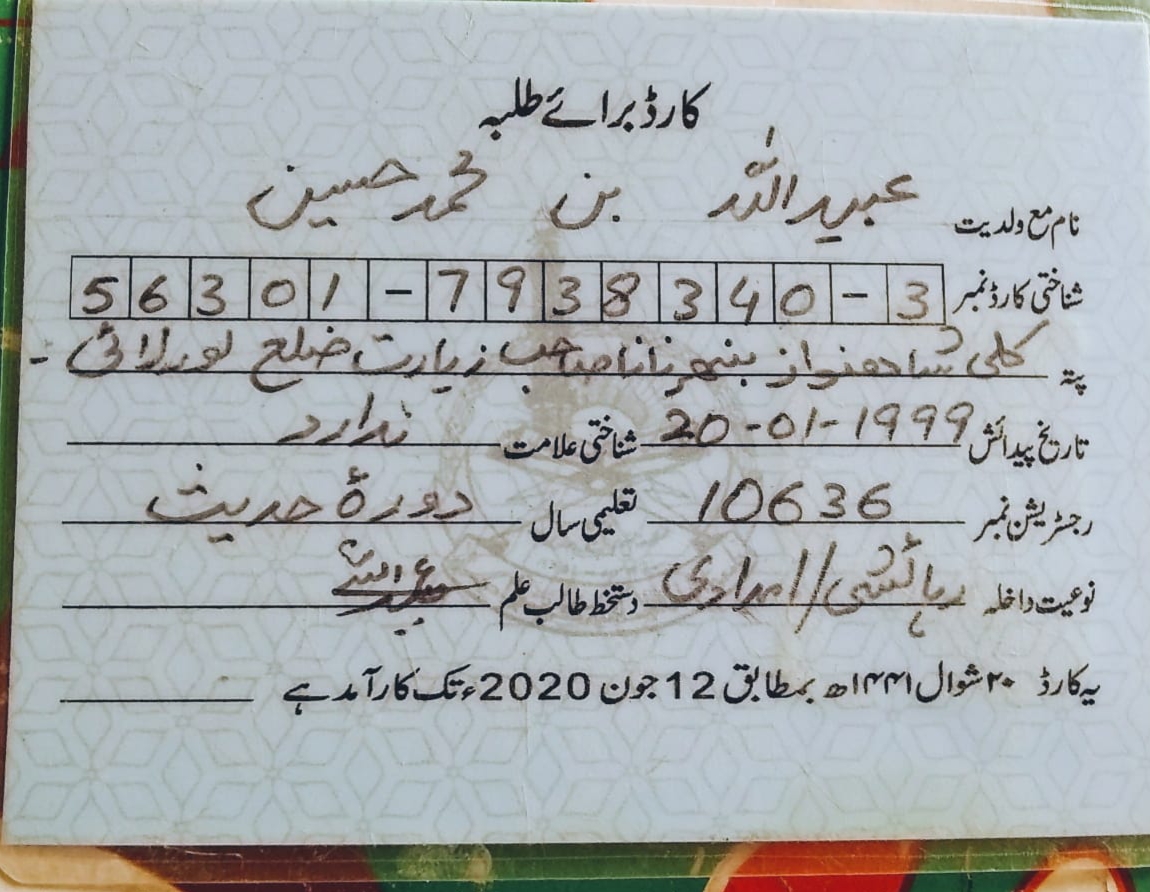 کارڈ برائے طلبہ
نام مع ولدیت عبیداللہ بن محمد حسین
شناختی کارڈ نمبر 56301-7938340-3
پتہ کلی شاھنواز نانا صاحب زیارت ضلع لورلائی -
تاریخ پیدائش 20-01-1999 شناختی علامت ندارد
رجسٹریشن نمبر 10636 تعلیمی سال دورۂ حدیث
نوعیت داخلہ رہائشی/امدادی دستخط طالب علم عبیداللہ
یہ کارڈ ۲۰ شوال ۱۴۴۱ھ بمطابق 12 جون 2020ء تک کارآمد ہے